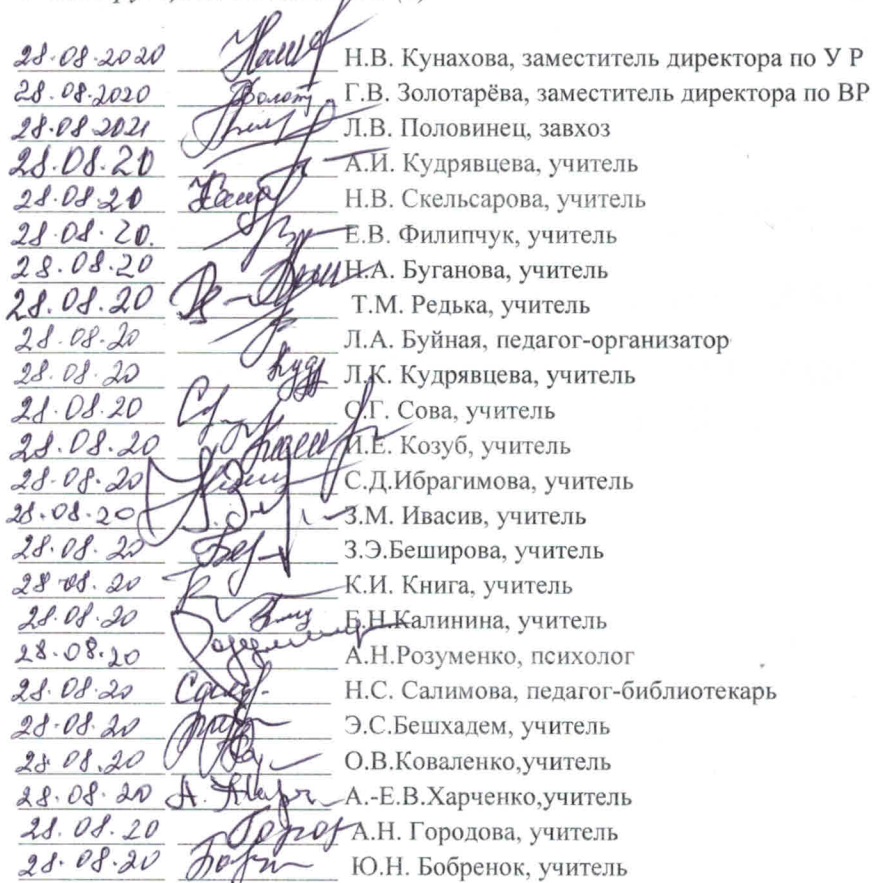 28.08.2020 Н.В. Кунахова, заместитель директора по У Р
28.08.2020 Г.В. Золотарёва, заместитель директора по ВР
28.08.202 Л.В. Половинец, завхоз
28.08.20 А.И. Кудрявцева, учитель
28.08.20 Н.В. Скельсарова, учитель
28.08.20. Е.В. Филипчук, учитель
28.08.20 Н.А. Буганова, учитель
28.08.20 Т.М. Редька, учитель
28.08.20 Л.А. Буйная, педагог-организатор
28.08.20 Л.К. Кудрявцева, учитель
28.08.20 О.Г. Сова, учитель
28.08.20 И.Е. Козуб, учитель
28.08.20 С.Д.Ибрагимова, учитель
28.08.20 З.М. Ивасив, учитель
28.08.20 З.Э.Беширова, учитель
28.08.20 К.И. Книга, учитель
28.08.20 Б.Н.Калинина, учитель
28.08.20 А.Н.Розуменко, психолог
28.08.20 Н.С. Салимова, педагог-библиотекарь
28.08.20 Э.С.Бешхадем, учитель
28.08.20 О.В.Коваленко,учитель
28.08.20 А.-Е.В.Харченко,учитель
28.08.20 А.Н. Городова, учитель
28.08.20 Ю.Н. Бобренок, учитель